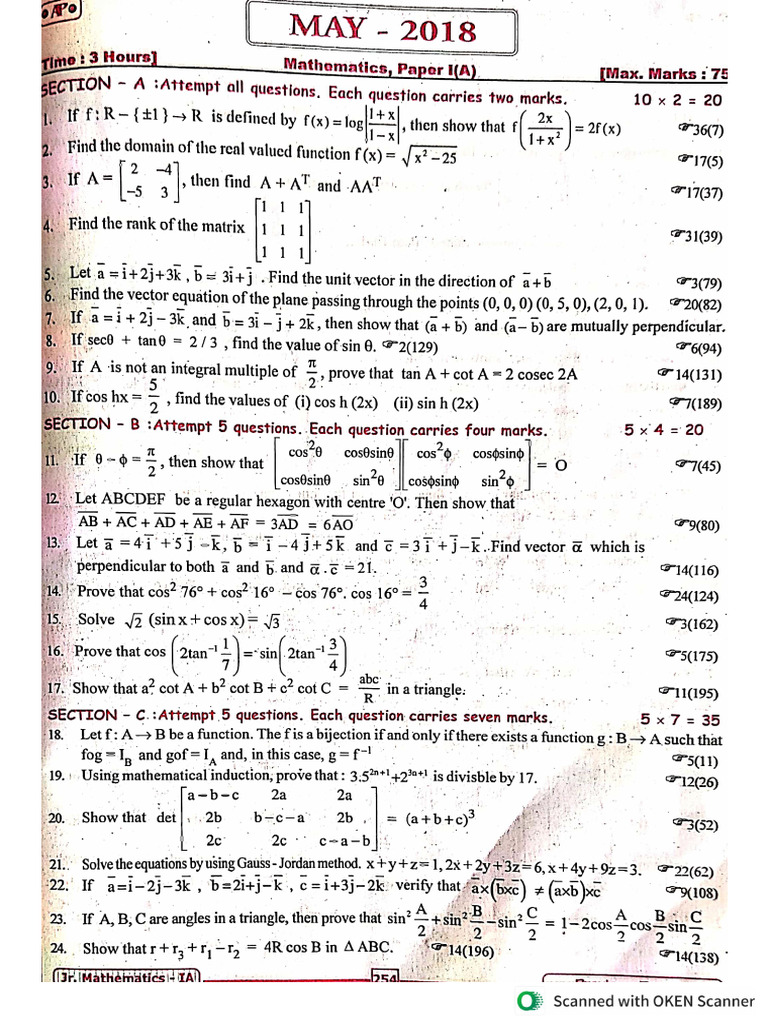 AP
MAY - 2018
Time : 3 Hours] Mathematics, Paper I(A) [Max. Marks : 75
SECTION - A : Attempt all questions. Each question carries two marks. 10 × 2 = 20
1. If f : R – {±1} → R is defined by f(x) = log|(1+x)/(1−x)|, then show that f(2x/(1+x²)) = 2f(x) ☞36(7)
2. Find the domain of the real valued function f(x) = √(x² − 25) ☞17(5)
3. If A = [2 −4; −5 3], then find A + Aᵀ and AAᵀ ☞17(37)
4. Find the rank of the matrix [1 1 1; 1 1 1; 1 1 1] ☞31(39)
5. Let a̅ = i̅+2j̅+3k̅, b̅ = 3i̅+j̅. Find the unit vector in the direction of a̅+b̅ ☞3(79)
6. Find the vector equation of the plane passing through the points (0, 0, 0) (0, 5, 0), (2, 0, 1). ☞20(82)
7. If a̅ = i̅ + 2j̅ − 3k̅ and b̅ = 3i̅ − j̅ + 2k̅, then show that (a̅ + b̅) and (a̅ − b̅) are mutually perpendicular.
8. If secθ + tanθ = 2/3, find the value of sin θ. ☞2(129) ☞6(94)
9. If A is not an integral multiple of π/2, prove that tan A + cot A = 2 cosec 2A ☞14(131)
10. If cos hx = 5/2, find the values of (i) cos h (2x) (ii) sin h (2x) ☞7(189)
SECTION - B : Attempt 5 questions. Each question carries four marks. 5 × 4 = 20
11. If θ − φ = π/2, then show that [cos²θ cosθsinθ; cosθsinθ sin²θ][cos²φ cosφsinφ; cosφsinφ sin²φ] = O ☞7(45)
12. Let ABCDEF be a regular hexagon with centre 'O'. Then show that
A̅B̅ + A̅C̅ + A̅D̅ + A̅E̅ + A̅F̅ = 3A̅D̅ = 6A̅O̅ ☞9(80)
13. Let a̅ = 4i̅ + 5j̅ − k̅, b̅ = i̅ − 4j̅ + 5k̅ and c̅ = 3i̅ + j̅ − k̅. Find vector α̅ which is
perpendicular to both a̅ and b̅ and α̅.c̅ = 21. ☞14(116)
14. Prove that cos² 76° + cos² 16° − cos 76°. cos 16° = 3/4 ☞24(124)
15. Solve √2 (sin x + cos x) = √3 ☞3(162)
16. Prove that cos(2tan⁻¹ 1/7) = sin(2tan⁻¹ 3/4) ☞5(175)
17. Show that a² cot A + b² cot B + c² cot C = abc/R in a triangle. ☞11(195)
SECTION - C : Attempt 5 questions. Each question carries seven marks. 5 × 7 = 35
18. Let f : A → B be a function. The f is a bijection if and only if there exists a function g : B → A such that
fog = I_B and gof = I_A and, in this case, g = f⁻¹ ☞5(11)
19. Using mathematical induction, prove that : 3.5²ⁿ⁺¹+2³ⁿ⁺¹ is divisble by 17. ☞12(26)
20. Show that det [a−b−c 2a 2a; 2b b−c−a 2b; 2c 2c c−a−b] = (a+b+c)³ ☞3(52)
21. Solve the equations by using Gauss - Jordan method. x+y+z=1, 2x+2y+3z=6, x+4y+9z=3. ☞22(62)
22. If a̅=i̅−2j̅−3k̅, b̅=2i̅+j̅−k̅, c̅=i̅+3j̅−2k̅ verify that a̅×(b̅×c̅) ≠ (a̅×b̅)×c̅ ☞9(108)
23. If A, B, C are angles in a triangle, then prove that sin² A/2 + sin² B/2 − sin² C/2 = 1−2cos A/2 cos B/2 sin C/2
24. Show that r + r₃ + r₁ − r₂ = 4R cos B in Δ ABC. ☞14(196) ☞14(138)
Jr. Mathematics - IA 254
Scanned with OKEN Scanner